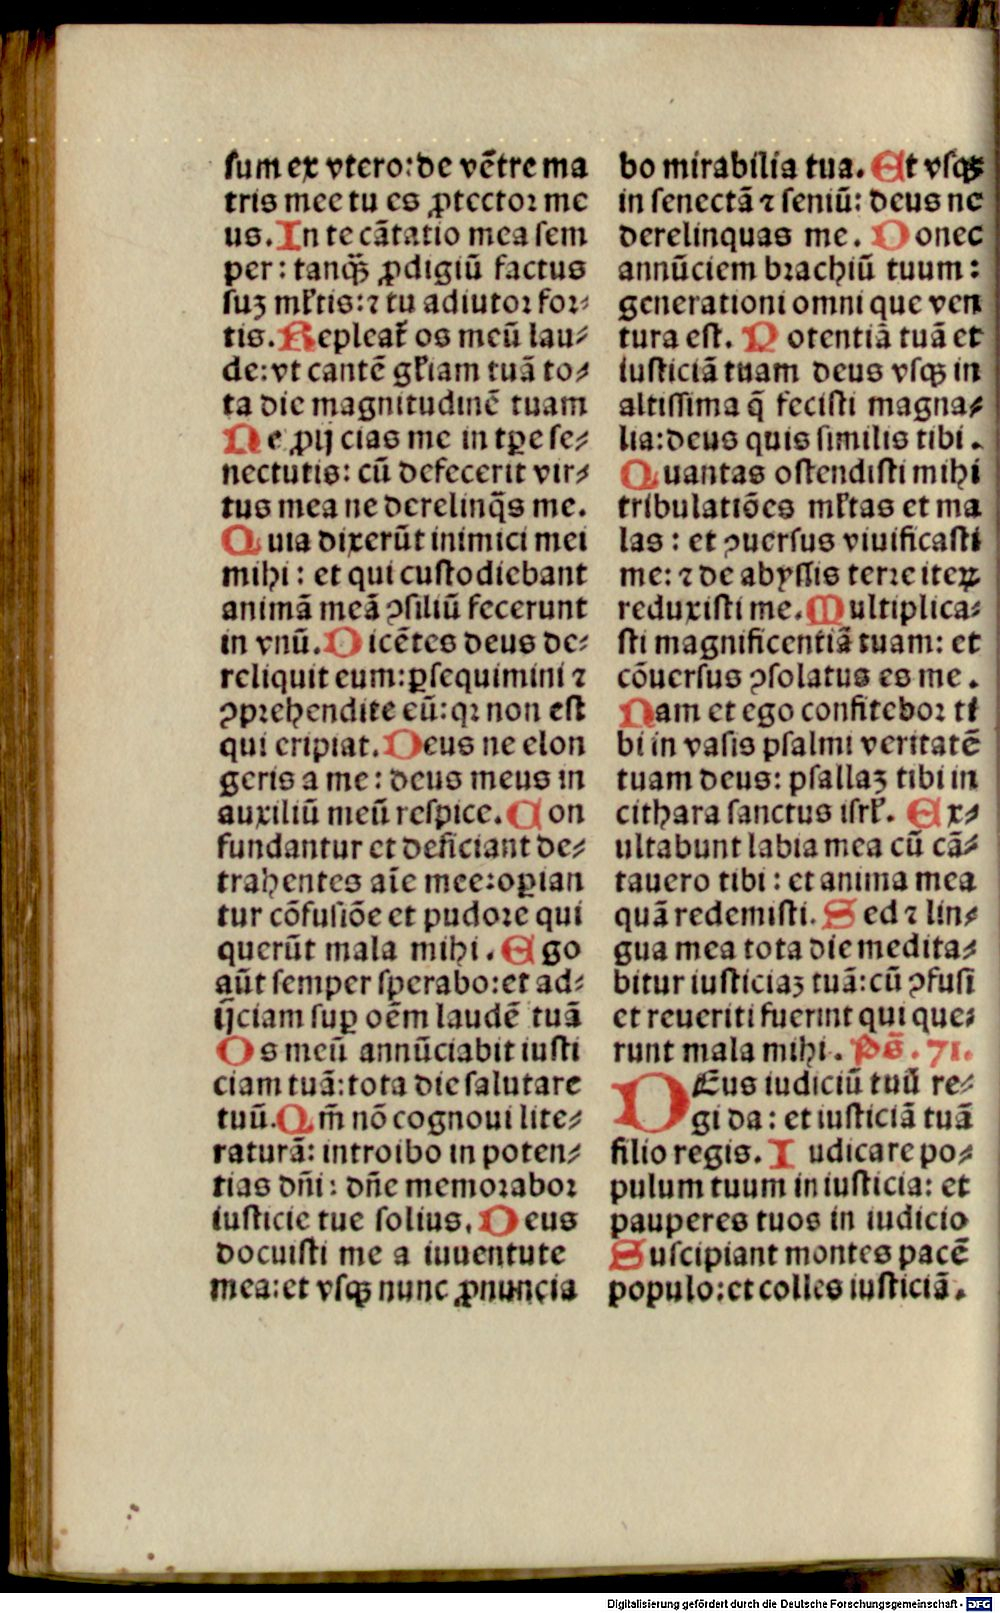 sum ex vtero: de vētre ma
tris mee tu es ꝓtectoꝛ me
us. In te cātatio mea sem
per: tanqꝫ̄ ꝓdigiū factus
suꝫ mr̄tis: ⁊ tu adiutoꝛ for⸗
tis. Repleat᷑ os meū lau⸗
de: vt cantē gl̄iam tuā to⸗
ta die magnitudinē tuam
Ne ꝓijcias me in tꝑe se⸗
nectutis: cū defecerit vir⸗
tus mea ne derelinq̄s me.
Quia dixerūt inimici mei
mihi: et qui custodiebant
animā meā ꝯsiliū fecerunt
in vnū. Dicētes deus de⸗
reliquit eum: ꝑsequimini ⁊
ꝯpꝛehendite eū: qꝛ non est
qui eripiat. Deus ne elon
geris a me: deus meus in
auxiliū meū respice. Con
fundantur et deficiant de⸗
trahentes aīe mee: oꝑian
tur cōfusiōe et pudoꝛe qui
querūt mala mihi. Ego
aūt semper sperabo: et ad⸗
ijciam suꝑ oēm laudē tuā
Os meū annūciabit iusti
ciam tuā: tota die salutare
tuū. Qm̄ nō cognoui lite⸗
raturā: introibo in poten⸗
tias dn̄i: dn̄e memoꝛaboꝛ
iusticie tue solius. Deus
docuisti me a iuuentute
mea: et vsqꝫ nunc ꝓnuncia
bo mirabilia tua. Et vsqꝫ
in senectā ⁊ seniū: deus ne
derelinquas me. Donec
annūciem bꝛachiū tuum:
generationi omni que ven
tura est. Potentiā tuā et
iusticiā tuam deus vsqꝫ in
altissima q̄ fecisti magna⸗
lia: deus quis similis tibi.
Quantas ostendisti mihi
tribulatiōes ml̄tas et ma
las: et ꝯuersus viuificasti
me: ⁊ de abyssis terre iteꝝ
reduxisti me. Multiplica⸗
sti magnificentiā tuam: et
cōuersus ꝯsolatus es me.
Nam et ego confiteboꝛ ti
bi in vasis psalmi veritatē
tuam deus: psallaꝫ tibi in
cithara sanctus isrl̄. Ex⸗
ultabunt labia mea cū cā⸗
tauero tibi: et anima mea
quā redemisti. Sed ⁊ lin⸗
gua mea tota die medita⸗
bitur iusticiaꝫ tuā: cū ꝯfusi
et reueriti fuerint qui que⸗
runt mala mihi. Ps̄. 71.
DEus iudiciū tuū re⸗
gi da: et iusticiā tuā
filio regis. Iudicare po⸗
pulum tuum in iusticia: et
pauperes tuos in iudicio
Suscipiant montes pacē
populo: et colles iusticiā.
Digitalisierung gefördert durch die Deutsche Forschungsgemeinschaft - DFG